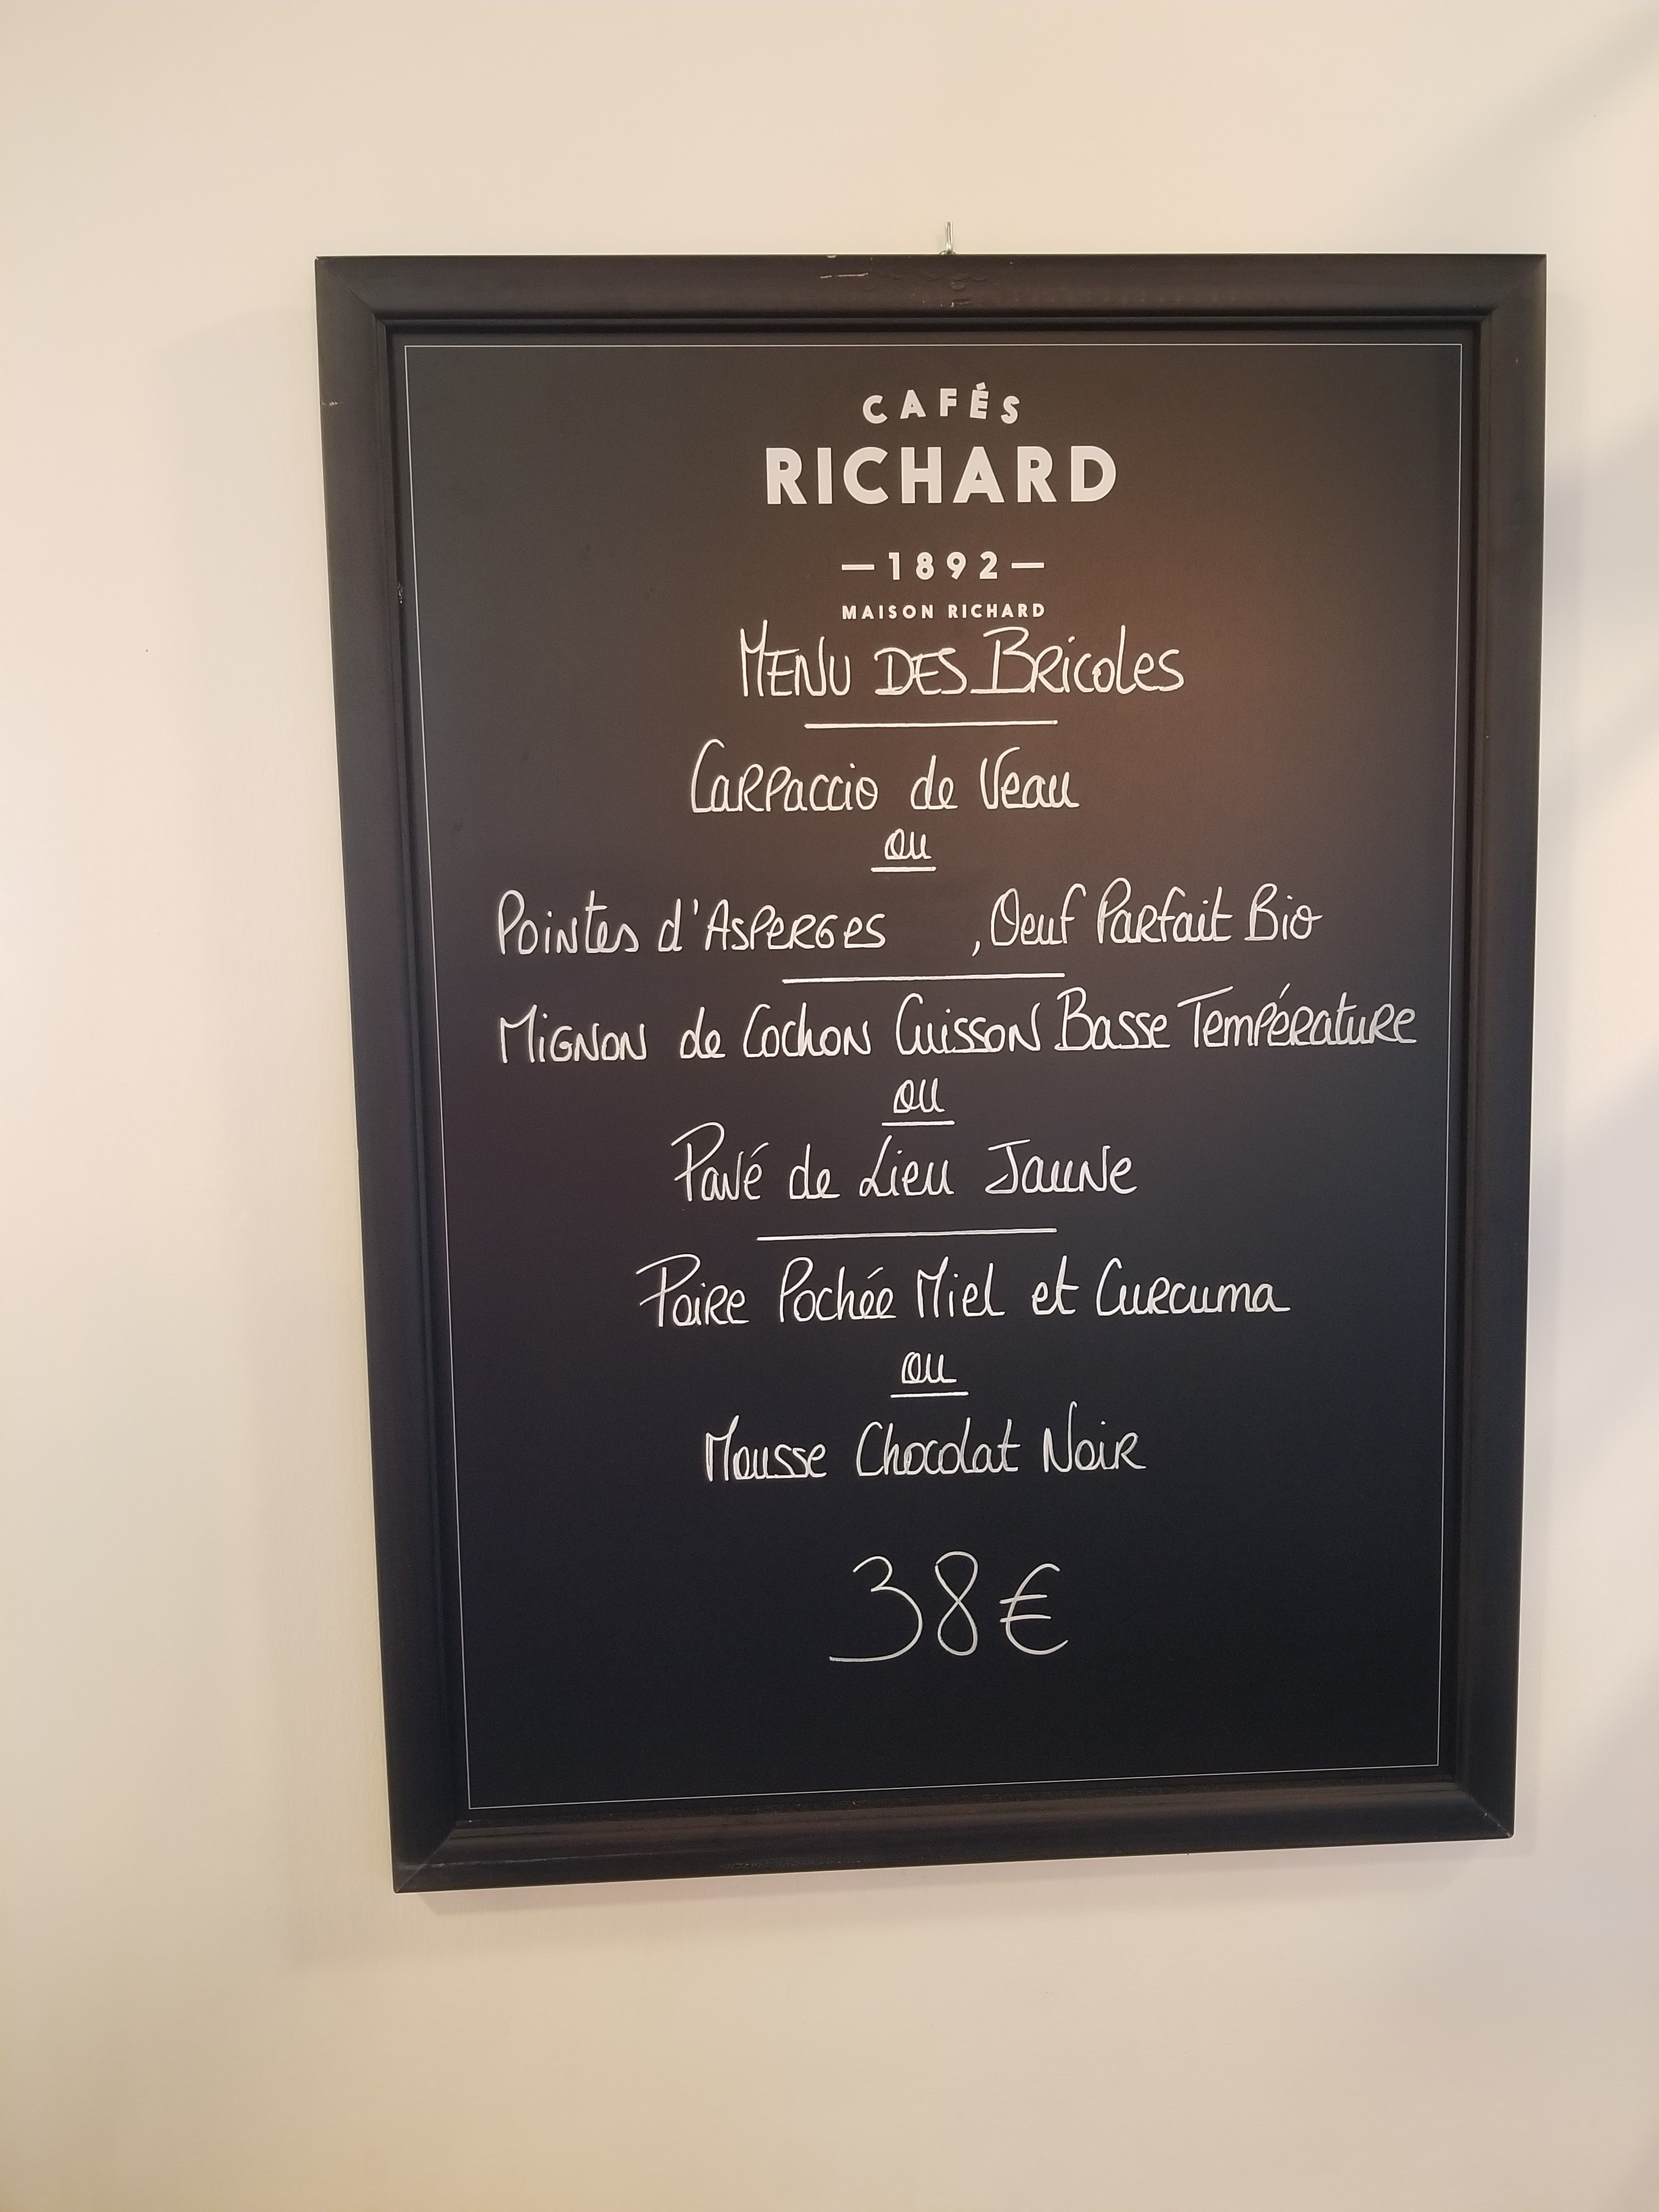 CAFÉS
RICHARD
—1892—
MAISON RICHARD
MENU DES Bricoles
Carpaccio de Veau
ou
Pointes d'Asperges , Oeuf Parfait Bio
Mignon de Cochon Cuisson Basse Température
ou
Pavé de Lieu Jaune
Poire Pochée Miel et Curcuma
ou
Mousse Chocolat Noir
38€